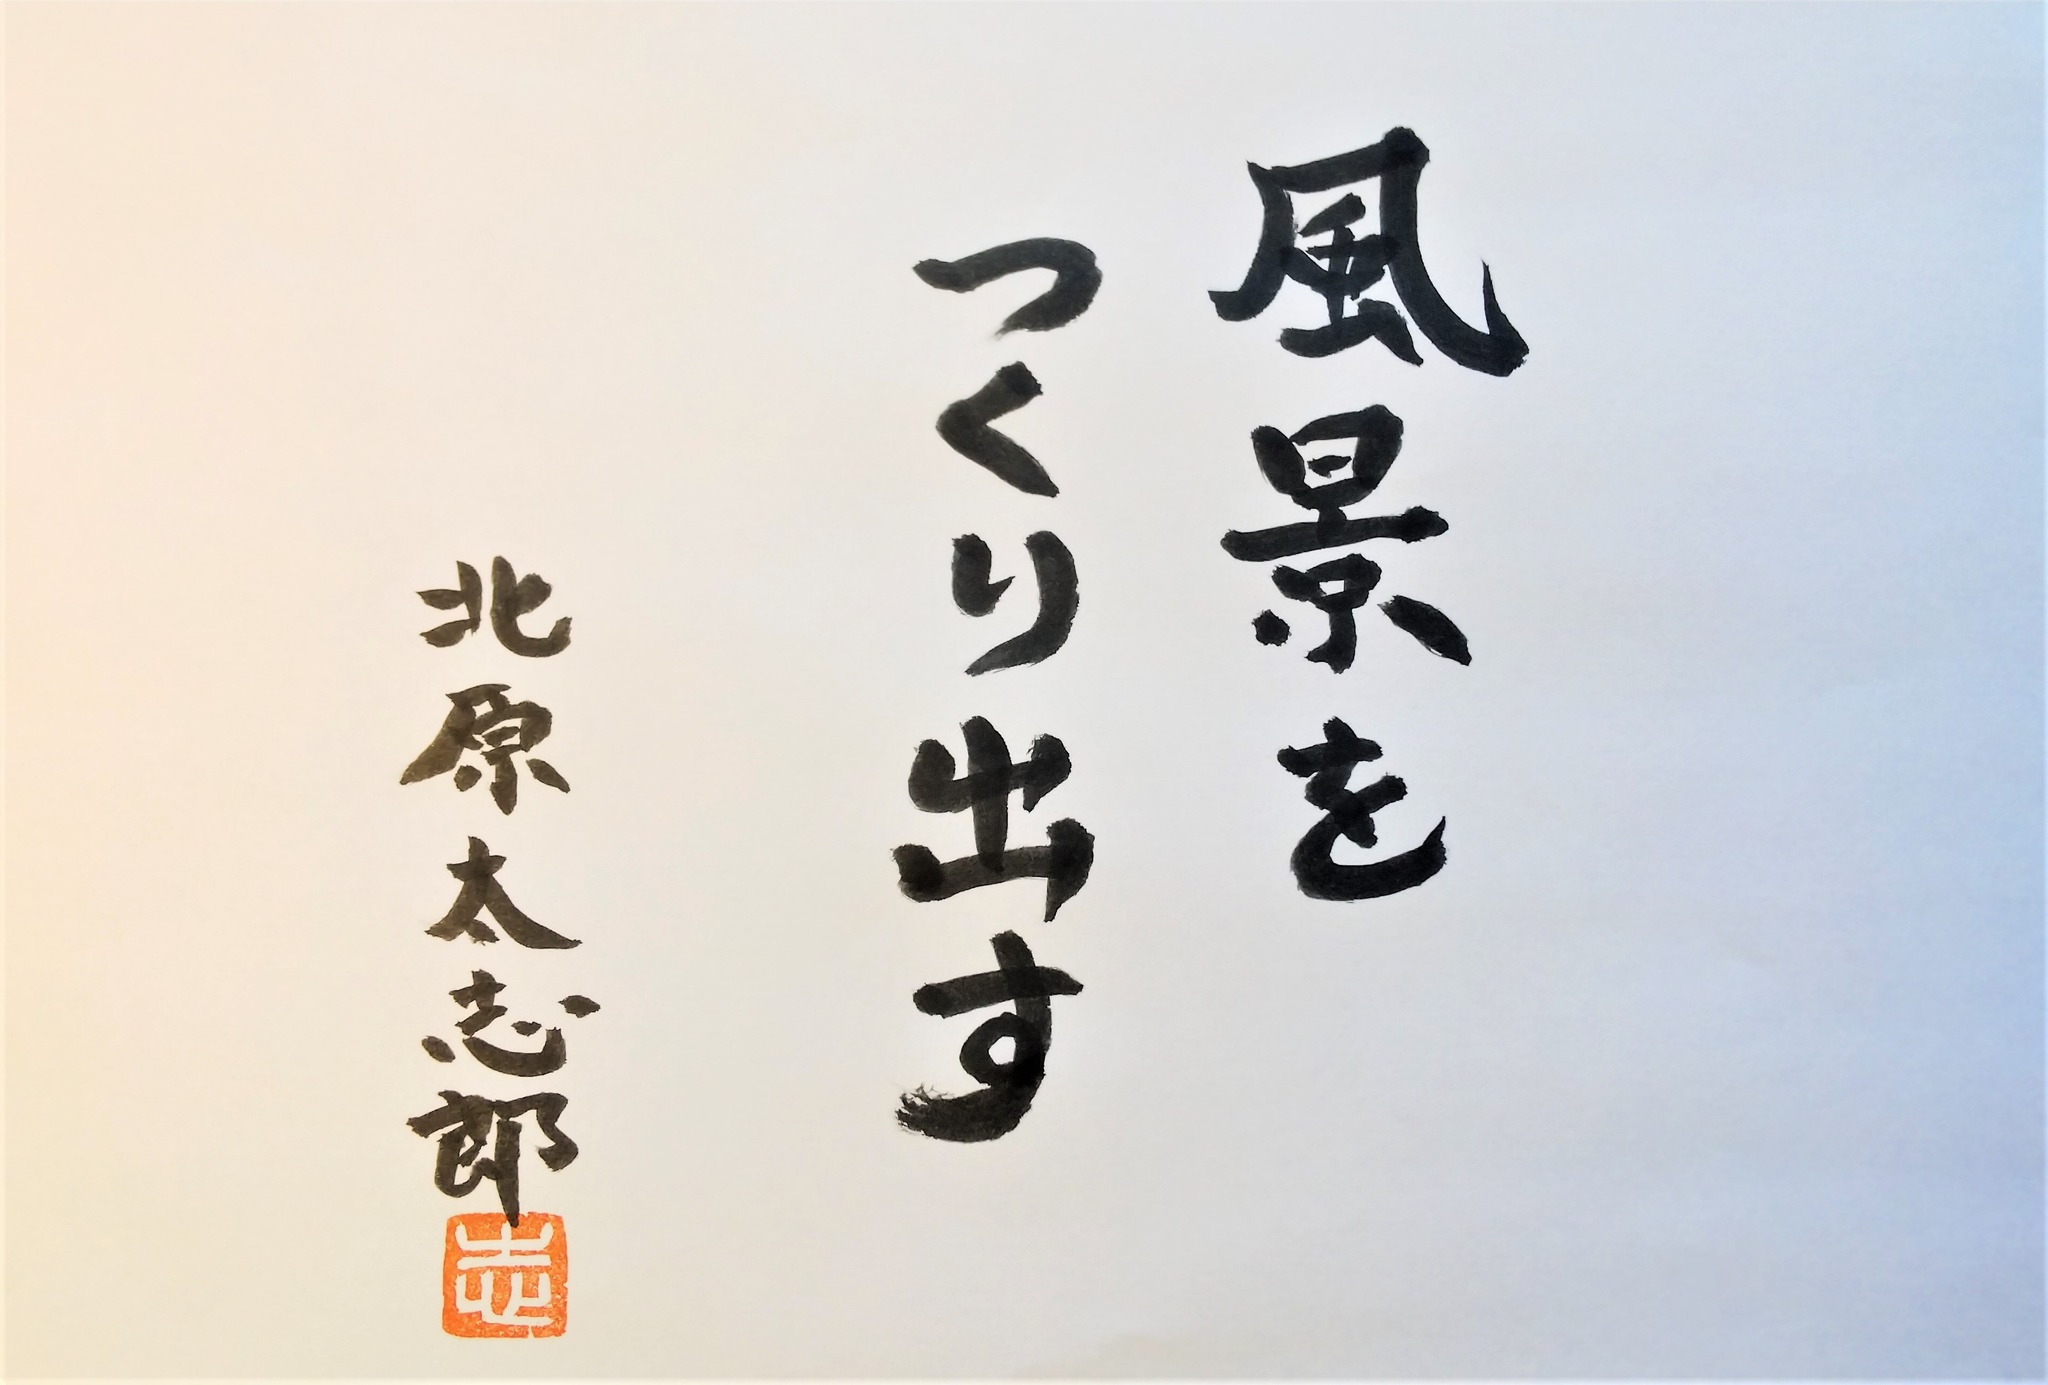 風景を
つくり出す
北原太志郎
志